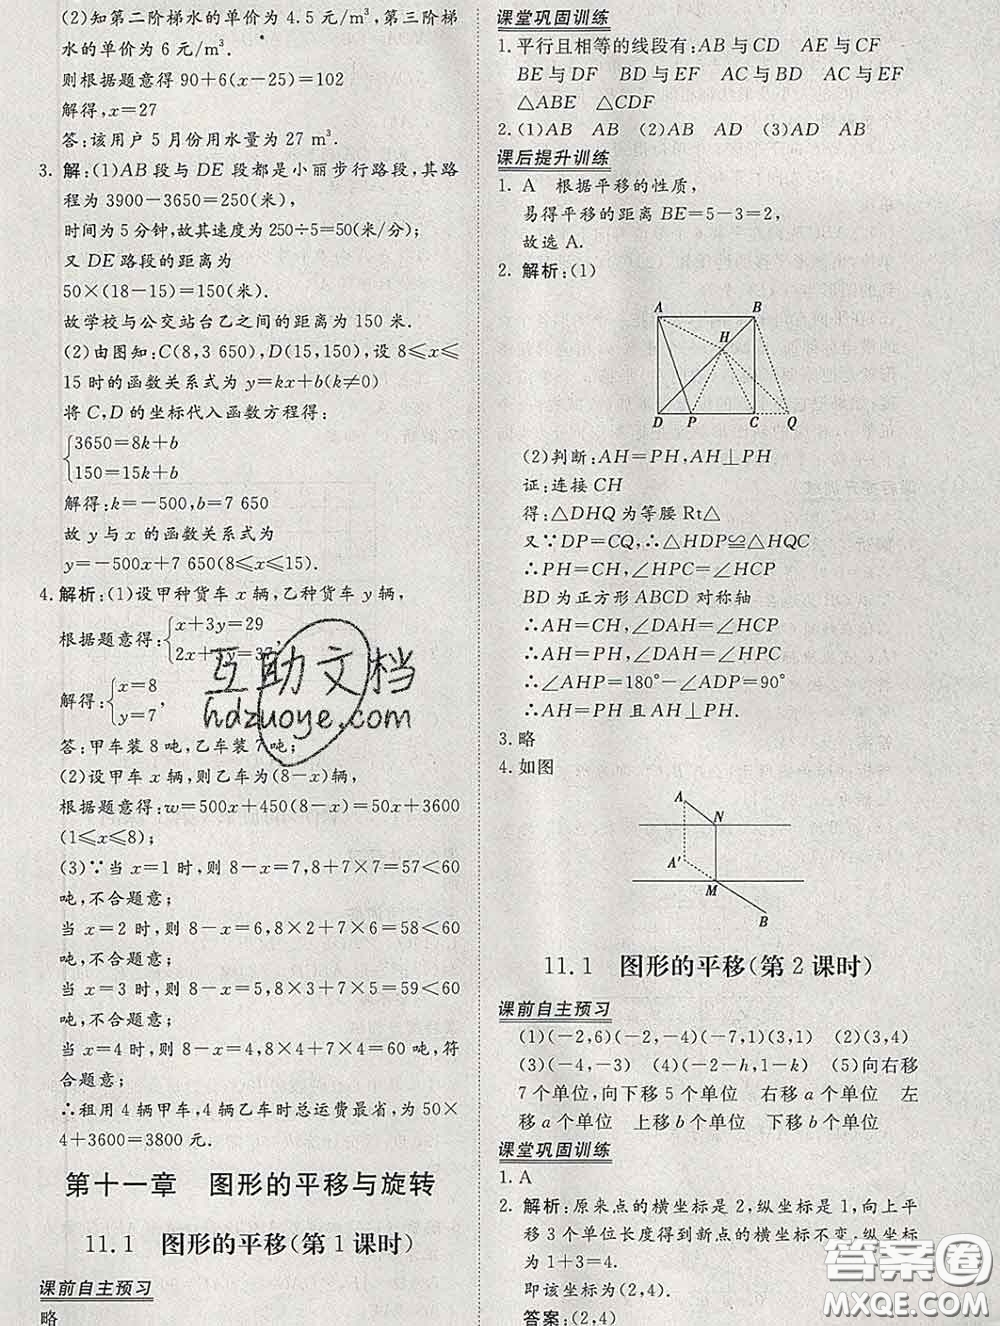 (2)知第二阶梯水的单价为 4.5 元/m³,第三阶梯
水的单价为 6 元/m³.
则根据题意得 90+6(x−25)=102
解得,x=27
答:该用户 5 月份用水量为 27 m³.
3. 解:(1)AB 段与 DE 段都是小丽步行路段,其路
程为 3900−3650=250(米),
时间为 5 分钟,故其速度为 250÷5=50(米/分);
又 DE 路段的距离为
50×(18−15)=150(米).
故学校与公交站台乙之间的距离为 150 米.
(2)由图知:C(8,3 650),D(15,150),设 8≤x≤
15 时的函数关系式为 y=kx+b(k≠0)
将 C,D 的坐标代入函数方程得:
3650=8k+b
150=15k+b
解得:k=−500,b=7 650
故 y 与 x 的函数关系式为
y=−500x+7 650(8≤x≤15).
4. 解析:(1)设甲种货车 x 辆,乙种货车 y 辆,
根据题意得:
x+3y=29
解得:
x=8
y=7
,
答:甲车装 8 吨,乙车装 7 吨;
(2)设甲车 x 辆,则乙车为(8−x)辆,
根据题意得:w=500x+450(8−x)=50x+3600
(1≤x≤8);
(3)∵当 x=1 时,则 8−x=7,8+7×7=57<60
吨,不合题意;
当 x=2 时,则 8−x=6,8×2+7×6=58<60
吨,不合题意;
当 x=3 时,则 8−x=5,8×3+7×5=59<60
吨,不合题意;
当 x=4 时,则 8−x=4,8×4+7×4=60 吨,符
合题意;
∴租用 4 辆甲车,4 辆乙车时总运费最省,为 50×
4+3600=3800 元.
第十一章 图形的平移与旋转
11.1 图形的平移(第 1 课时)
课前自主预习
略
课堂巩固训练
1. 平行且相等的线段有:AB 与 CD AE 与 CF
BE 与 DF BD 与 EF AC 与 BD AC 与 EF
△ABE △CDF
2. (1)AB AB (2)AB AD (3)AD AB
课后提升训练
1. A 根据平移的性质,
易得平移的距离 BE=5−3=2,
故选 A.
2. 解析:(1)
A B
H
D P C Q
(2)判断:AH=PH,AH⊥PH
证:连接 CH
得:△DHQ 为等腰 Rt△
又∵DP=CQ,∴△HDP≌△HQC
∴PH=CH,∠HPC=∠HCP
BD 为正方形 ABCD 对称轴
∴AH=CH,∠DAH=∠HCP
∴AH=PH,∠DAH=∠HPC
∴∠AHP=180°−∠ADP=90°
∴AH=PH 且 AH⊥PH.
3. 略
4. 如图
A
N
A′
M
B
11.1 图形的平移(第 2 课时)
课前自主预习
(1)(−2,6)(−2,−4)(−7,1)(3,1) (2)(3,4)
(3)(−4,−3) (4)(−2−h,1−k) (5)向右移
7 个单位,向下移 5 个单位 右移 a 个单位 左
移 a 个单位 上移 b 个单位 下移 b 个单位
课堂巩固训练
1. A
2. 解析:原来点的横坐标是 2,纵坐标是 1,向上平
移 3 个单位长度得到新点的横坐标不变,纵坐标
为 1+3=4.
即该坐标为(2,4).
答案:(2,4)
互助文档
hdzuoye.com
答案圈
MXQE.COM